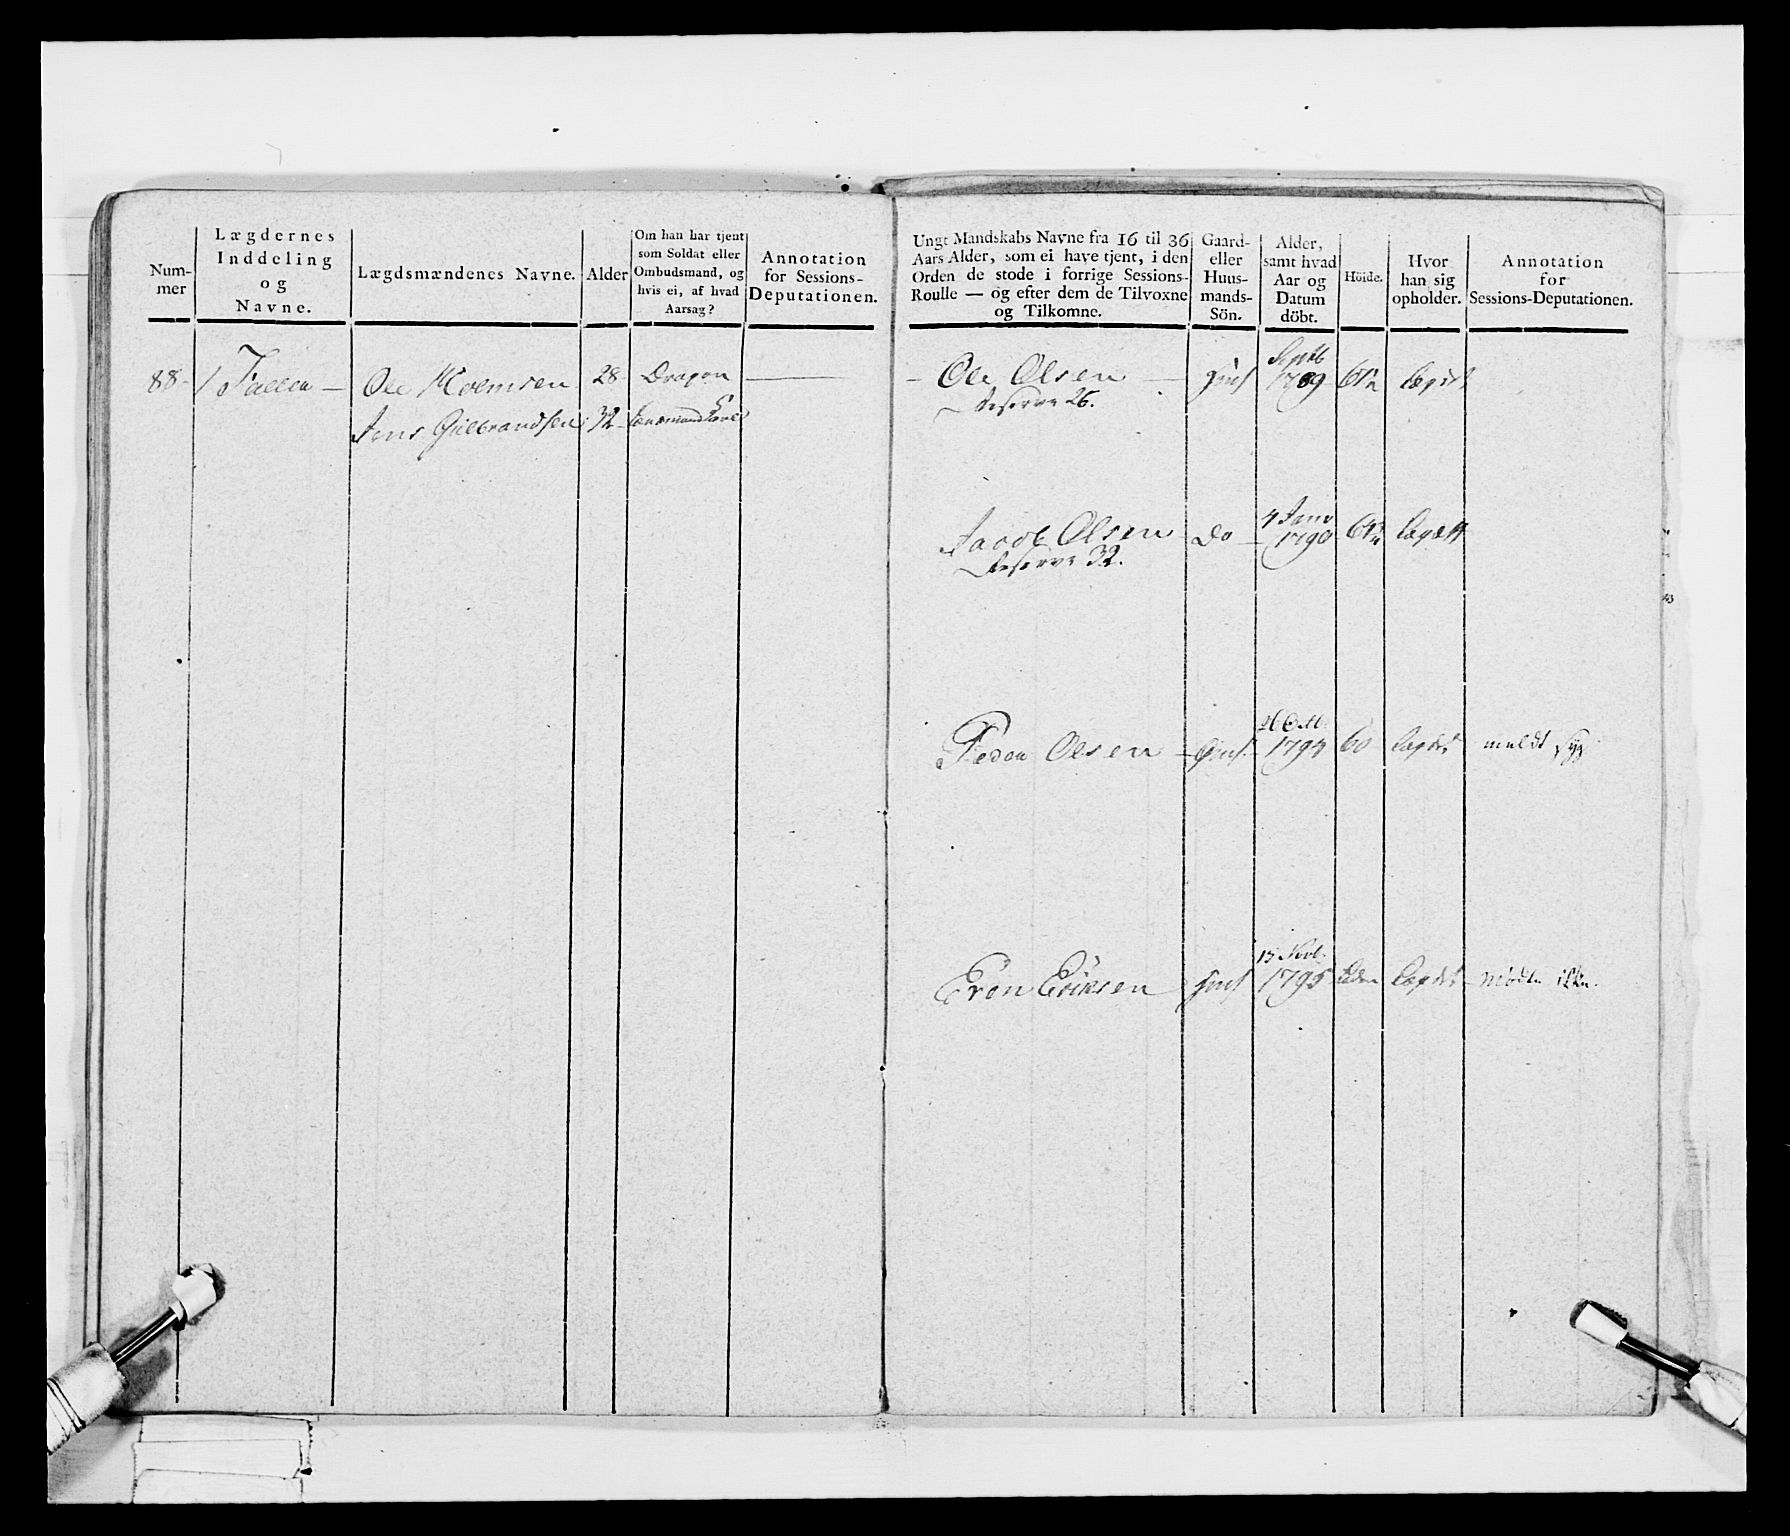 Num-
mer
Lægdernes
Inddeling
og
Navne.
Lægdsmændenes Navne.
Alder
Om han har tjent
som Soldat eller
Ombudsmand, og
hvis ei, af hvad
Aarsag?
Annotation
for Sessions-
Deputationen.
88 - Ole Holmsen 28 Dragon
Jens Gulbrandsen 32
Ungt Mandskabs Navne fra 16 til 36
Aars Alder, som ei have tjent, i den
Orden de stode i forrige Sessions-
Roulle — og efter dem de Tilvoxne
og Tilkomne.
Gaard-
eller
Huus-
mands-
Sön.
Alder,
samt hvad
Aar og
Datum
döbt.
Höide.
Hvor
han sig
opholder.
Annotation
for
Sessions-Deputationen.
Ole Olsen 1789
Reserve 26.
4 Janv
Jacob Olsen Do 1790
Reserve 32.
26 Octb.
Peder Olsen 1794 60 Lægdet meldt syg
15 Novb.
Even Eriksen 1795 Lægdet mödte ikke.